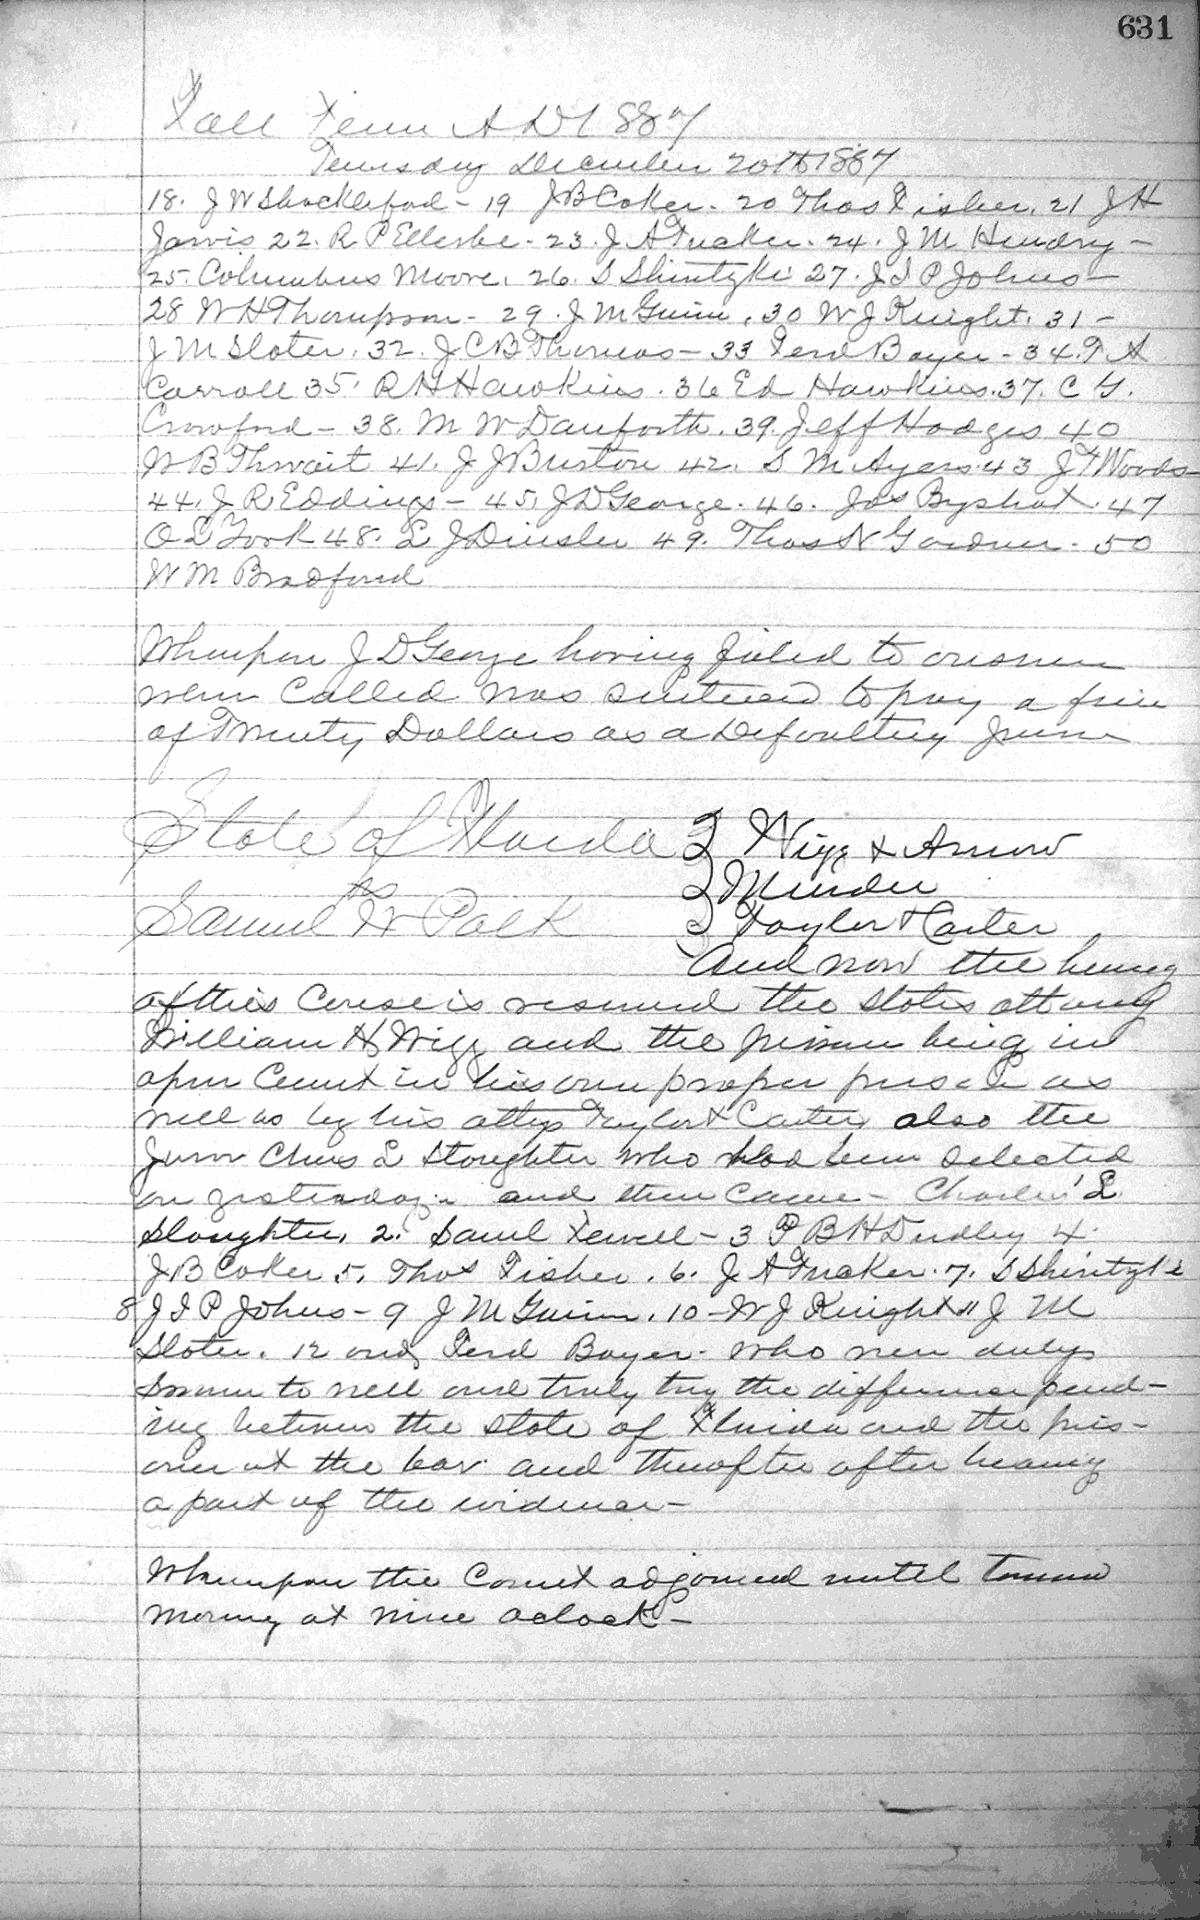 631
Fall Term A D 1887
Thursday December 20th 1887
18. J W Shackleford - 19 J B Coker - 20 Thos Fisher. 21 J H
Jarvis 22. R P Ellerbe - 23. J A Tucker. 24. J M Hendry -
25. Columbus Moore. 26. S Shintzki 27. J I P Johns -
28 W H Thompson - 29. J M Guinn. 30 W J Knight. 31 -
J M Slater. 32. J C B Thomas - 33 Ferd Bayer - 34. T A
Carroll 35. R H Hawkins. 36 Ed Hawkins. 37. C G.
Crawford - 38. M W Danforth. 39. Jeff Hodges 40
W B Thwait 41. J J Burton 42. S M Ayers. 43 J F Woods -
44. J R Eddings - 45. J D George. 46. Jas 47
O L York 48. L J 49. Thos N Gardner - 50
W M Bradford
Whereupon J D George having failed to answer
when called was sentenced to pay a fine
of Twenty Dollars as a Defaulting Juror
State of Florida } Wigg & Arnow
vs } Murder
Samuel W Palk } Taylor & Carter
And now the hearing
of this Cause is resumed the States attorney
William H Wigg and the prisoner being in
open Court in his own proper person as
well as by his attys Taylor & Carter also the
Juror Chas L Sloughter who had been selected
on yesterday - and then came - Charles L
Sloughter, 2. Saml Fewell - 3 P B H Dudley 4.
J B Coker 5. Thos Fisher. 6. J A Tucker. 7. S Shintzki
8 J I P Johns - 9 J M Guinn. 10 - W J Knight 11 J M
Slater. 12 and Ferd Bayer - who were duly
sworn to well and truly try the difference pend-
ing between the State of Florida and the pris-
oner at the bar and thereafter after hearing
a part of the evidence -
Whereupon the Court adjourned until tomorrow
morning at nine oclock -